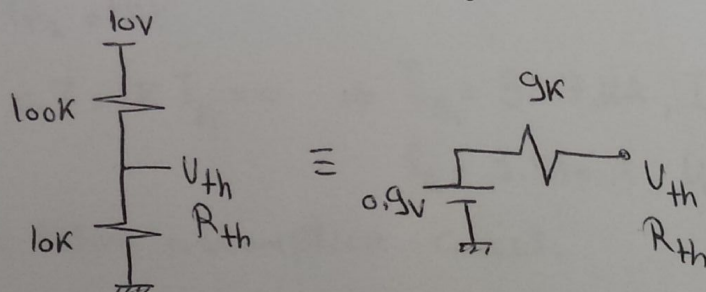 10V
100K
U_th
R_th
10K
≡
9K
0.9V
U_th
R_th